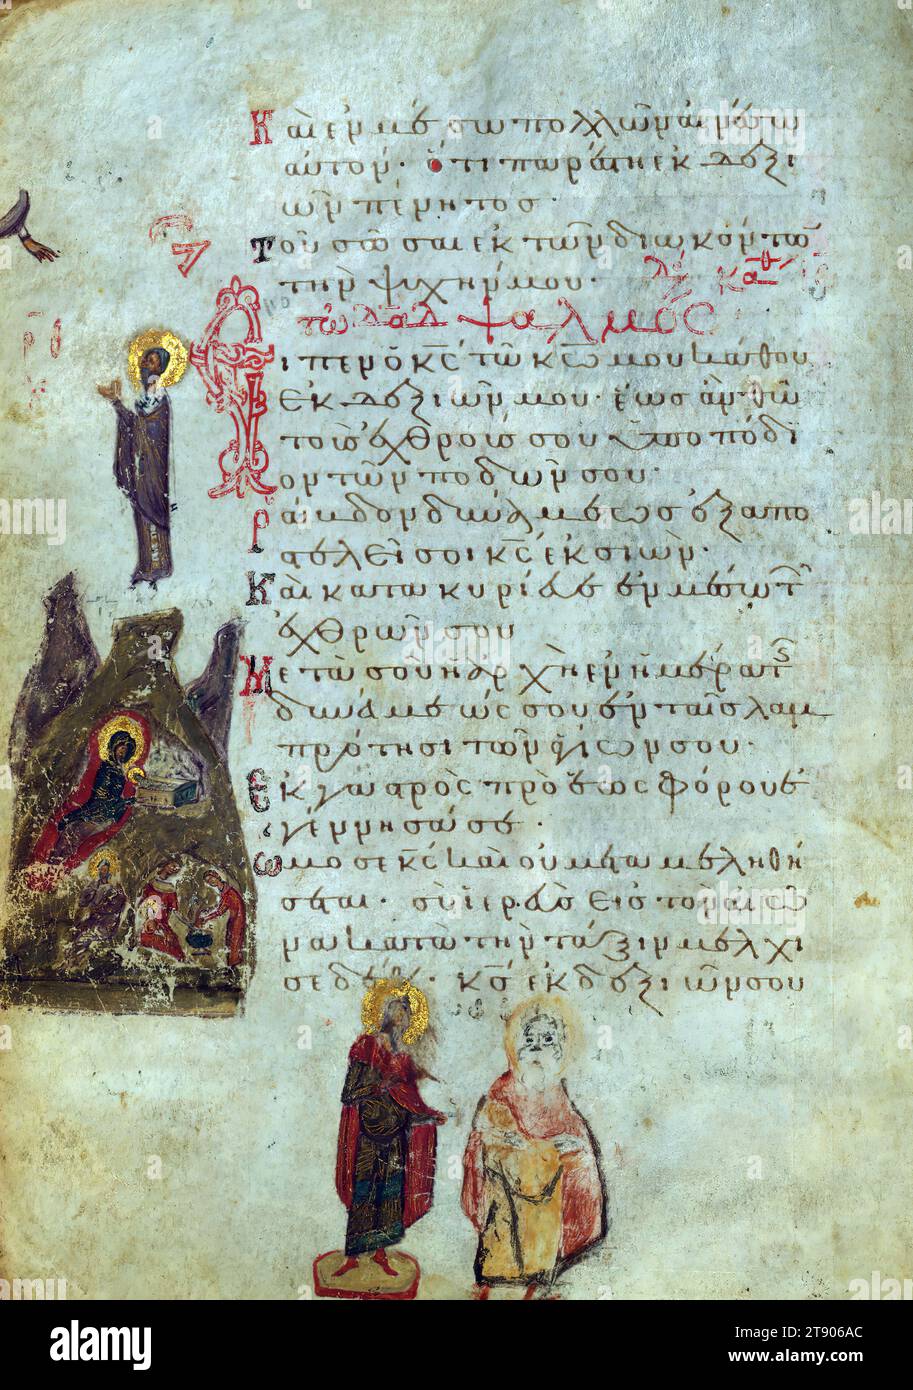 Καὶ ἐν μέσω πολλῶν αἰνέσω
αὐτόν· ὅτι παρέστη ἐκ δεξι
ῶν πένητος·
Τοῦ σῶσαι ἐκ τῶν διωκόντω
τὴν ψυχήν μου·
τῶ δα̅δ ψαλμός
Εἶπεν ὁ κ̅ς τῶ κ̅ω μου κάθου
ἐκ δεξιῶν μου· ἕως ἂν θῶ
τοὺς ἐχθρούς σου ὑποπόδι
ον τῶν ποδῶν σου·
Ράβδον δυνάμεως ἐξαπο
στελεῖ σοι κ̅ς ἐκ σιὼν·
Καὶ κατακυρίευε ἐν μέσω τ
ἐχθρῶν σου
Μετὰ σοῦ ἡ ἀρχὴ ἐν ἡμέρα τς
δυνάμεώς σου ἐν ταῖς λαμ
πρότησι τῶν ἁγίων σου·
Ἐκ γαστρὸς πρὸ ἑωσφόρου ἐ
γέννησά σε·
Ὤμοσε κ̅ς καὶ οὐ μεταμεληθή
σεται· σὺ ἱερεὺς εἰς τὸν αἰῶ
να κατὰ τὴν τάξιν μελχι
σεδέκ· κ̅ς ἐκ δεξιῶν σου
alamy
Image ID: 2T906AC
www.alamy.com